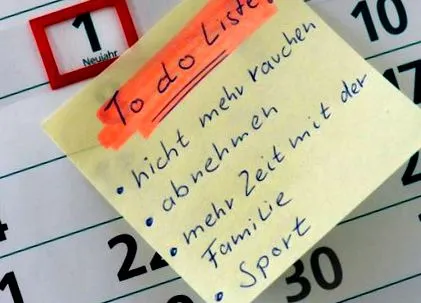 1
Neujahr
10
17
To do Liste
• nicht mehr rauchen
• abnehmen
• mehr Zeit mit der
Familie
• Sport
22
30